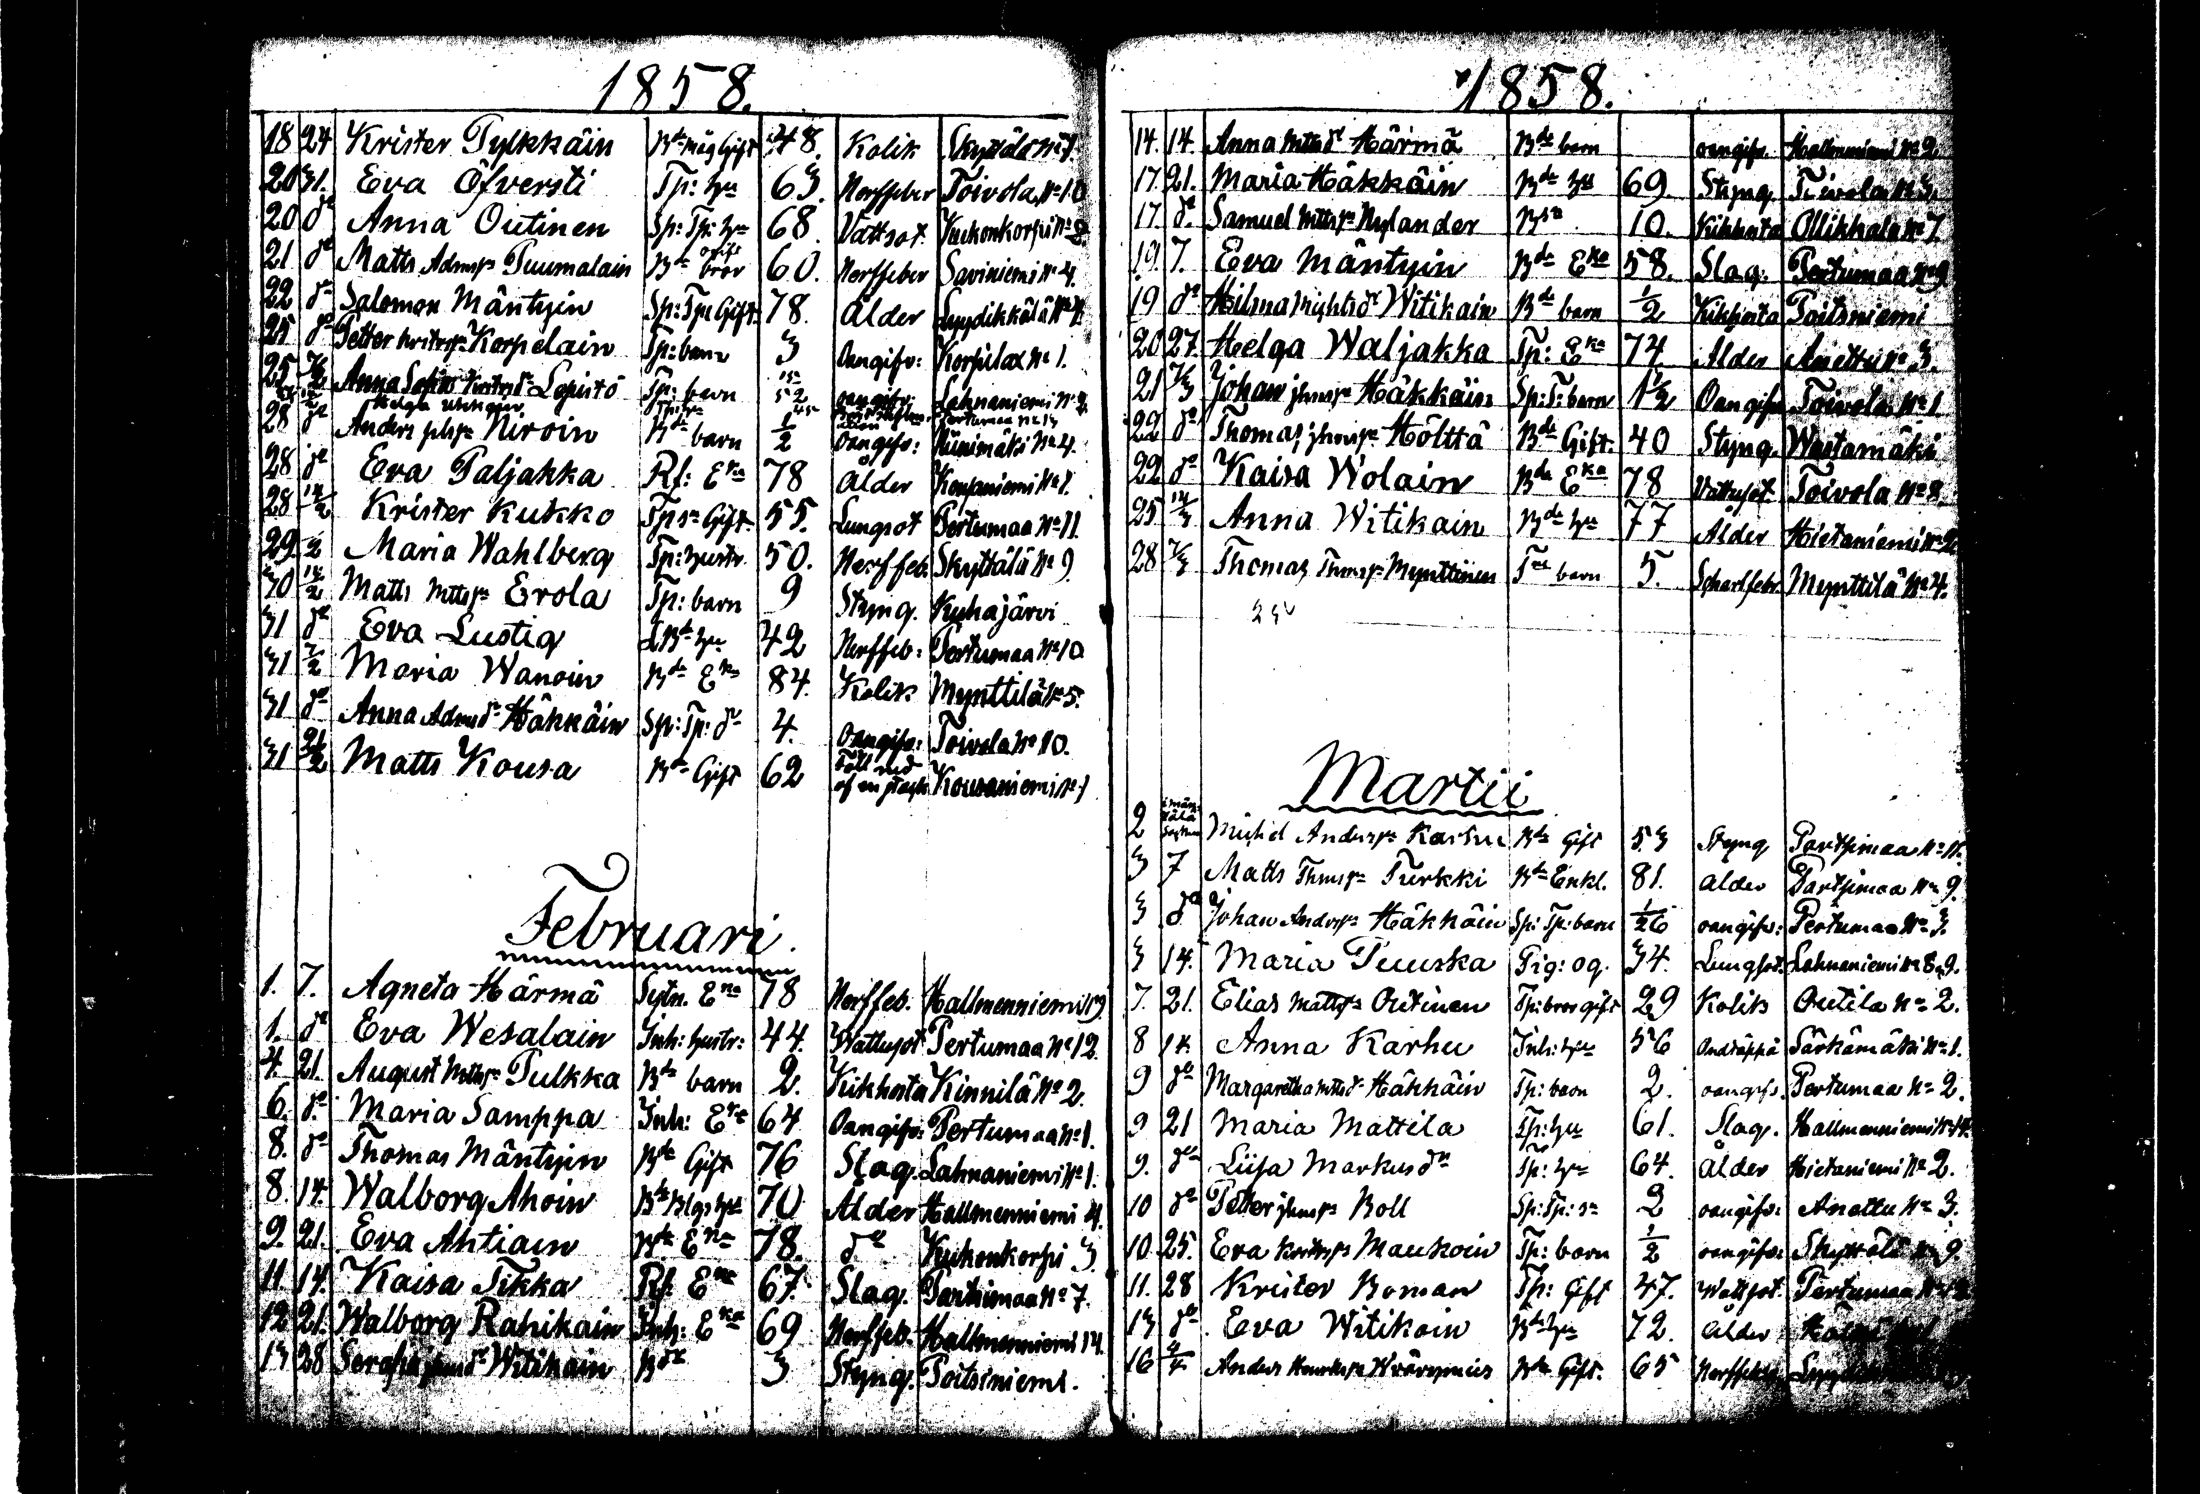 1858.
18 24 Krister Pylkkäin Bde måg Gift 48. Kolik Skyttälä N:o 7.
20 31. Eva Öfversti Tp: hu 63. Nerffeber Toivola N:o 10
20 do Anna Outinen Sp: Tp: hu 68. Vattsot Kukonkorpi No 8.
21 do Matts Adamsn Puumalain Bde ogift bror 60. Nerffeber Saviniemi No 4.
22 do Salomon Mäntyin Sp: Tp: Gift 78. Ålder Lyydikkälä
25 do Petter Kristersn Korpelain Tp: barn 3 Oangifv: Korpilax No 1.
25 7/2 Anna Sofia Lepistö Tp: barn oangifv: Lahnaniemi
28 do Anders Neroin Bde barn 1/2 oangifv: Niinimäki No 4.
28 do Eva Paljakka Rf: Eka 78 Ålder
28 14/2 Krister Kukko Tpsn Gift 55. Lungsot Pertumaa No 11.
29 Maria Wahlberg Tp: hustr. 50. Nerffeb. Skyttälä No 9.
30 14/2 Matts Mattsn Erola Tp: barn 9 Styng. Kuhajärvi
31 do Eva Lustig hu 49 Nerffeb: Pertumaa No 10
31 7/2 Maria Wanoin Bde Eka 84. Kolik Mynttilä No 5.
31 do Anna Adamdr Häkkäin Sp: Tp: dr 4. Oangifv: Toivola No 10.
31 21/2 Matts Kousa Bde Gift 62 Föll ned af en Kousaniemi No 1
Februari.
1. 7. Agneta Härmä Sytn. Eka 78 Nerffeb. Hallmenniemi
1. do Eva Wesalain Inh: hustr: 44. Wattusot Pertumaa No 12.
4. 21. August Mattsn Pulkka Bde barn 2. Kikhosta Kinnilä No 2.
6. do Maria Samppa Inh: Eka 64 Oangifv: Pertumaa No 1.
8. do Thomas Mäntyin Bde Gift 76 Slag. Lahnaniemi No 1.
8. 14. Walborg Ahoin Bde hu 70 Ålder Hallmenniemi 4.
9. 21. Eva Ahtiain Bde Eka 78. do Kukonkorpi 3.
11. 14. Kaisa Tikka Rf: Eka 67. Slag. Partsimaa No 7.
12 21. Walborg Rahikain Inh: Eka 69 Nerffeb. Hallmenniemi 14.
13 28 Serafia Witikain Bdr 3 Styng. Poitsiniemi.
1858.
14. 14. Anna Mattsdr Härmä Bde barn oangifv. Hallmenniemi No 2.
17. 21. Maria Häkkäin Bde hu 69. Styng. Toivola No 3.
17. do Samuel Mattsn Nylander Bsn 10. Kikhosta Ollikkala No 7.
19. 7. Eva Mäntyin Bde Eka 58. Slag. Pertumaa No 9.
19 do Hilma Witikain Bde barn 1/2 Kikhosta Poitsniemi
20 27. Helga Waljakka Tp: Eka 74. Ålder Anettu No 3.
21 7/3 Johan Johansn Häkkäin Sp: T: barn 1 1/2 Oangifv. Toivola No 1
22 do Thomas Johansn Hölttä Bde Gift. 40 Styng. Wastamäki
22 do Kaisa Wolain Bde Eka 78 Vattusot Toivola No 8.
25 14/3 Anna Witikain Bde hu 77 Ålder Hietaniemi No 2.
28 7/3 Thomas Thomsn Mynttinen barn 5. Scharlfebr. Mynttilä No 4.
Martii
2 Michel Andersn Karhu Bde Gift 53 Styng Partsimaa No 11.
3 7 Matts Thomsn Turkki Bde Enkl. 81. Ålder Partsimaa No 9.
3 do Johan Andersn Häkkäin Sp: Tp: barn 1/26 oangifv: Pertumaa No 3.
3 14. Maria Puuska Pig: og. 34. Lungsot. Lahnaniemi No 8, 9.
7. 21. Elias Mattsn Outinen Tp: bror gift 29 Kolik Outila No 2.
8 14. Anna Karhu Inh: hu 56 Andtäppa Särkämäki No 1.
9 do Margaretha Mattsdr Häkkäin Tp: barn 2. oangifv. Pertumaa No 2.
9 21 Maria Mattila Tp: hu 61. Slag. Hallmenniemi No 14.
9. do Liisa Markusdr Tp: hu 64. Ålder Hietaniemi No 2.
10 do Petter Johansn Boll Sp: Tp: sn 2 oangifv: Anettu No 3.
10. 25. Eva Maukoin Tp: barn 1/2 oangifv: Skyttälä No 9.
11. 28 Krister Boman Tp: Gift 47. Wattsot. Pertumaa
13 do Eva Witikoin Bde hu 72. Ålder
16 4/4 Anders Henriksn Bde Gift. 65 Nerffeber